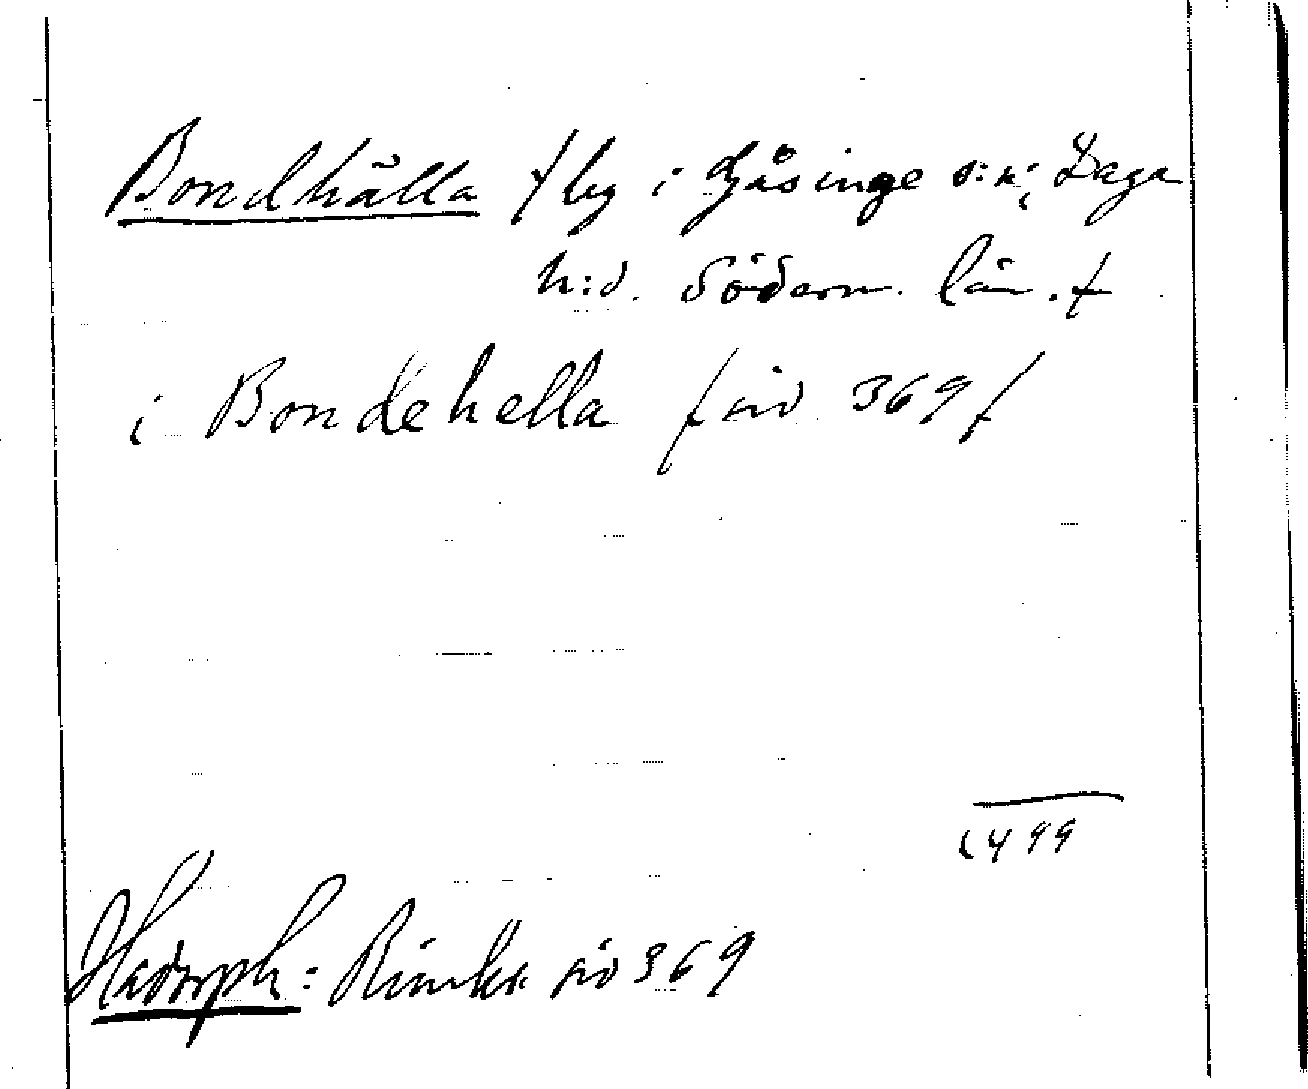 Bondhälla / by i Gåsinge s:n; Daga
h:d. Söderm. län. /
i Bondehella / sid 369 /
1499
Hadorph: Rimkr sid 369